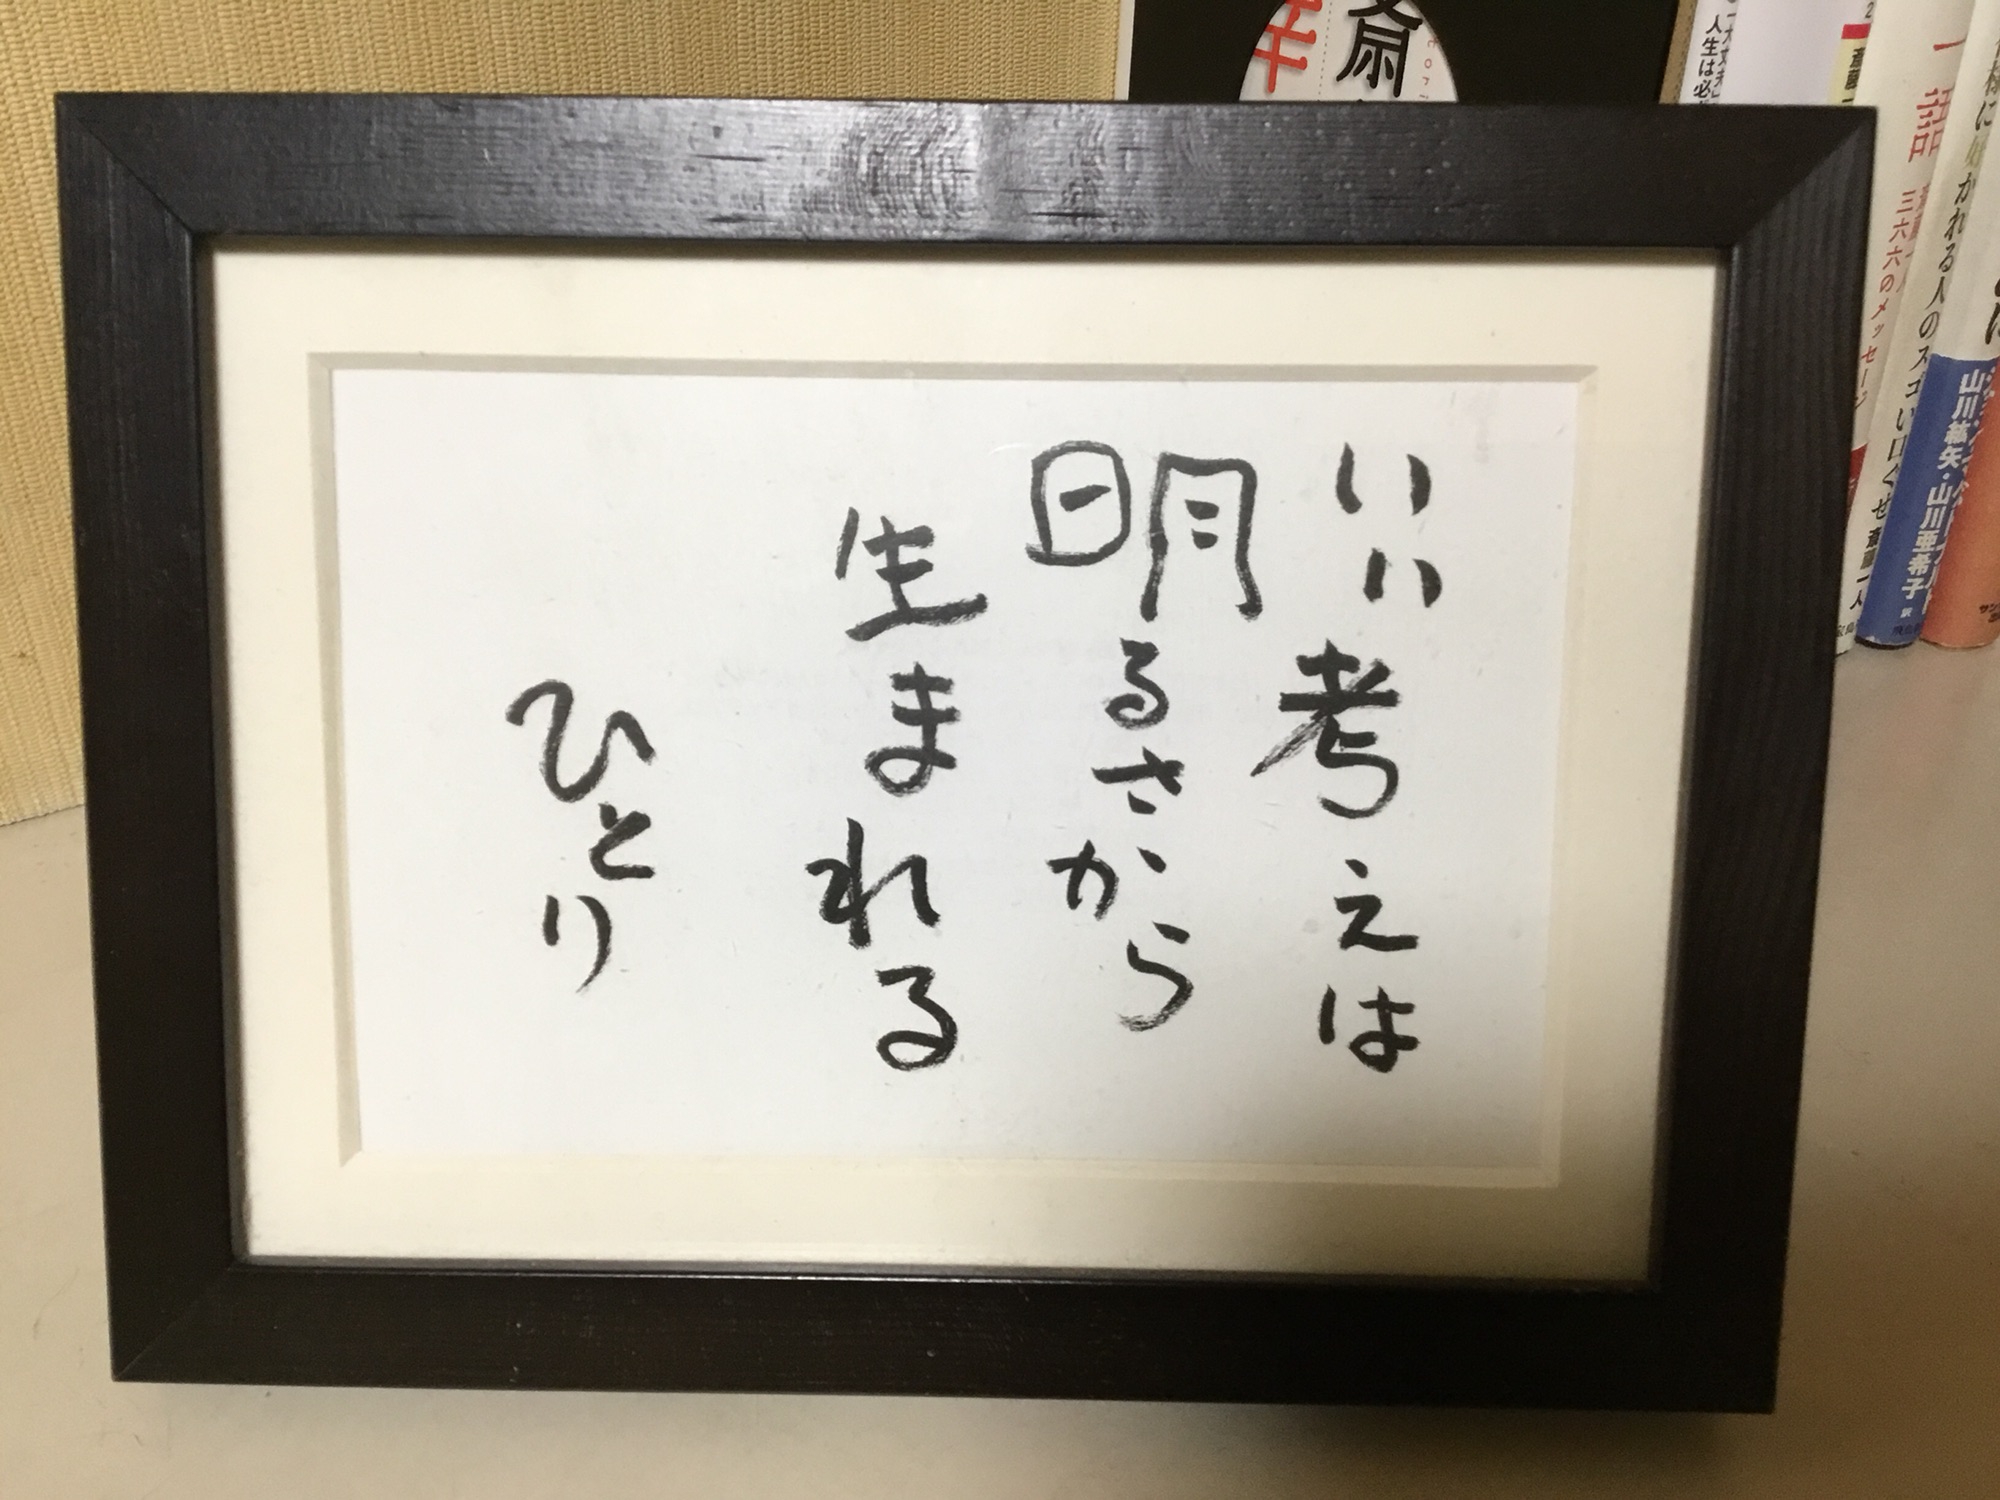 いい考えは
明るさから
生まれる
ひとり
斎
幸
人生は必
斎藤一
一語
斎藤一人
三六六のメッセージ
様に好かれる人のスゴい口ぐせ 斎藤一人
山川紘矢・山川亜希子 訳